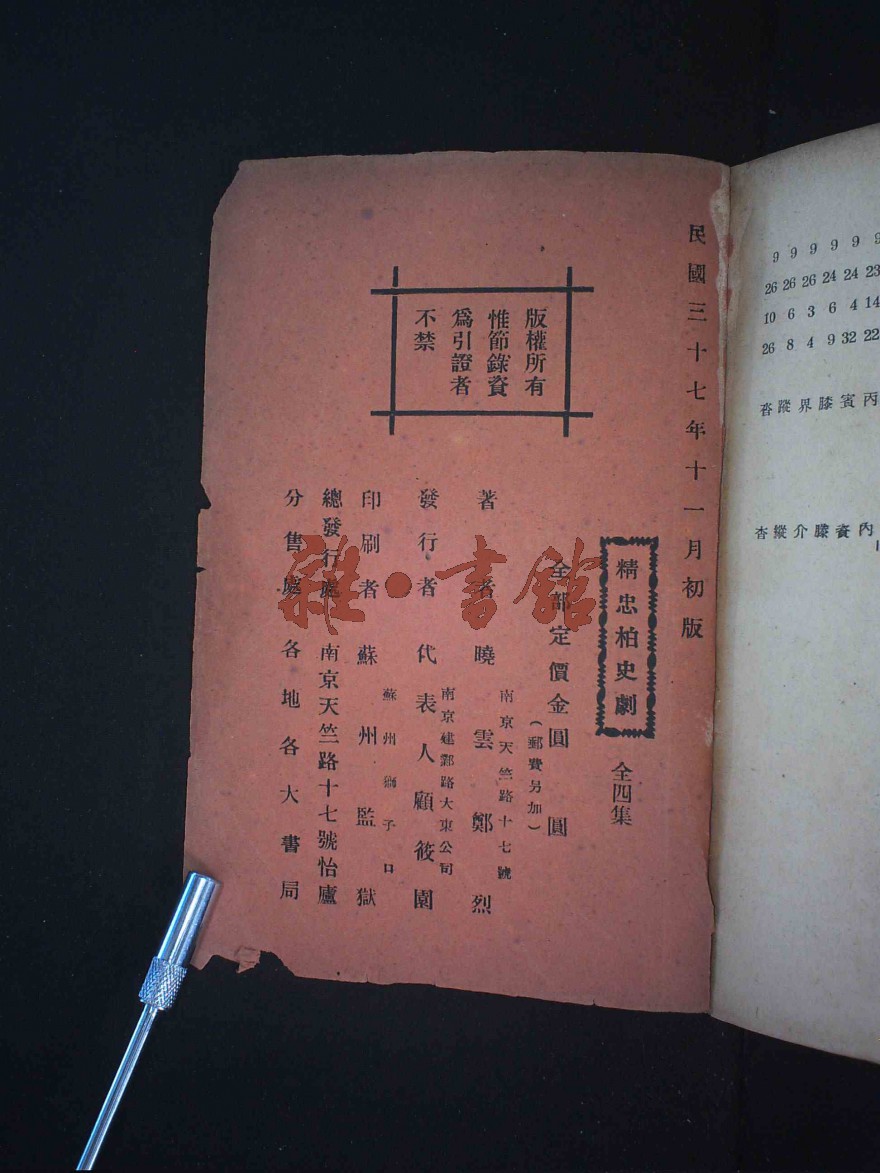 民國三十七年十一月初版
精忠柏史劇 全四集
全部定價金圓 圓
(郵費另加)
南京天竺路十七號
著者 曉雲鄭烈
南京建鄴路大東公司
發行者 代表人顧筱園
蘇州獅子口
印刷者 蘇州監獄
總發行處 南京天竺路十七號怡廬
分售處 各地各大書局
版權所有
惟節錄資
為引證者
不禁
雜·書館
9 9 9 9 9 9
26 26 26 24 24 23
10 6 3 6 4 14
26 8 4 9 32 22
丙賓膝界蹤沓
內賓滕介縱杳